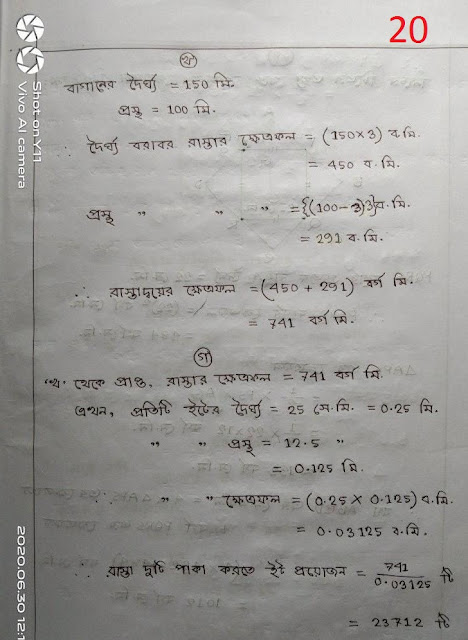 20
খ
বাগানের দৈর্ঘ্য = 150 মি.
প্রস্থ = 100 মি.
∴ দৈর্ঘ্য বরাবর রাস্তার ক্ষেত্রফল = (150×3) ব.মি.
= 450 ব.মি.
প্রস্থ " " " = {(100-3)3}ব.মি.
= 291 ব.মি.
∴ রাস্তাদ্বয়ের ক্ষেত্রফল = (450 + 291) বর্গ মি.
= 741 বর্গ মি.
গ
'খ' থেকে প্রাপ্ত, রাস্তার ক্ষেত্রফল = 741 বর্গ মি.
এখন, প্রতিটি ইটের দৈর্ঘ্য = 25 সে.মি. = 0.25 মি.
" " প্রস্থ = 12.5 "
= 0.125 মি.
∴ " " ক্ষেত্রফল = (0.25 × 0.125) ব.মি.
= 0.03125 ব.মি.
∴ রাস্তা দুটি পাকা করতে ইট প্রয়োজন = 741/0.03125 টি
= 23712 টি
Shot on Y11
Vivo AI camera
2020.06.30 12:1